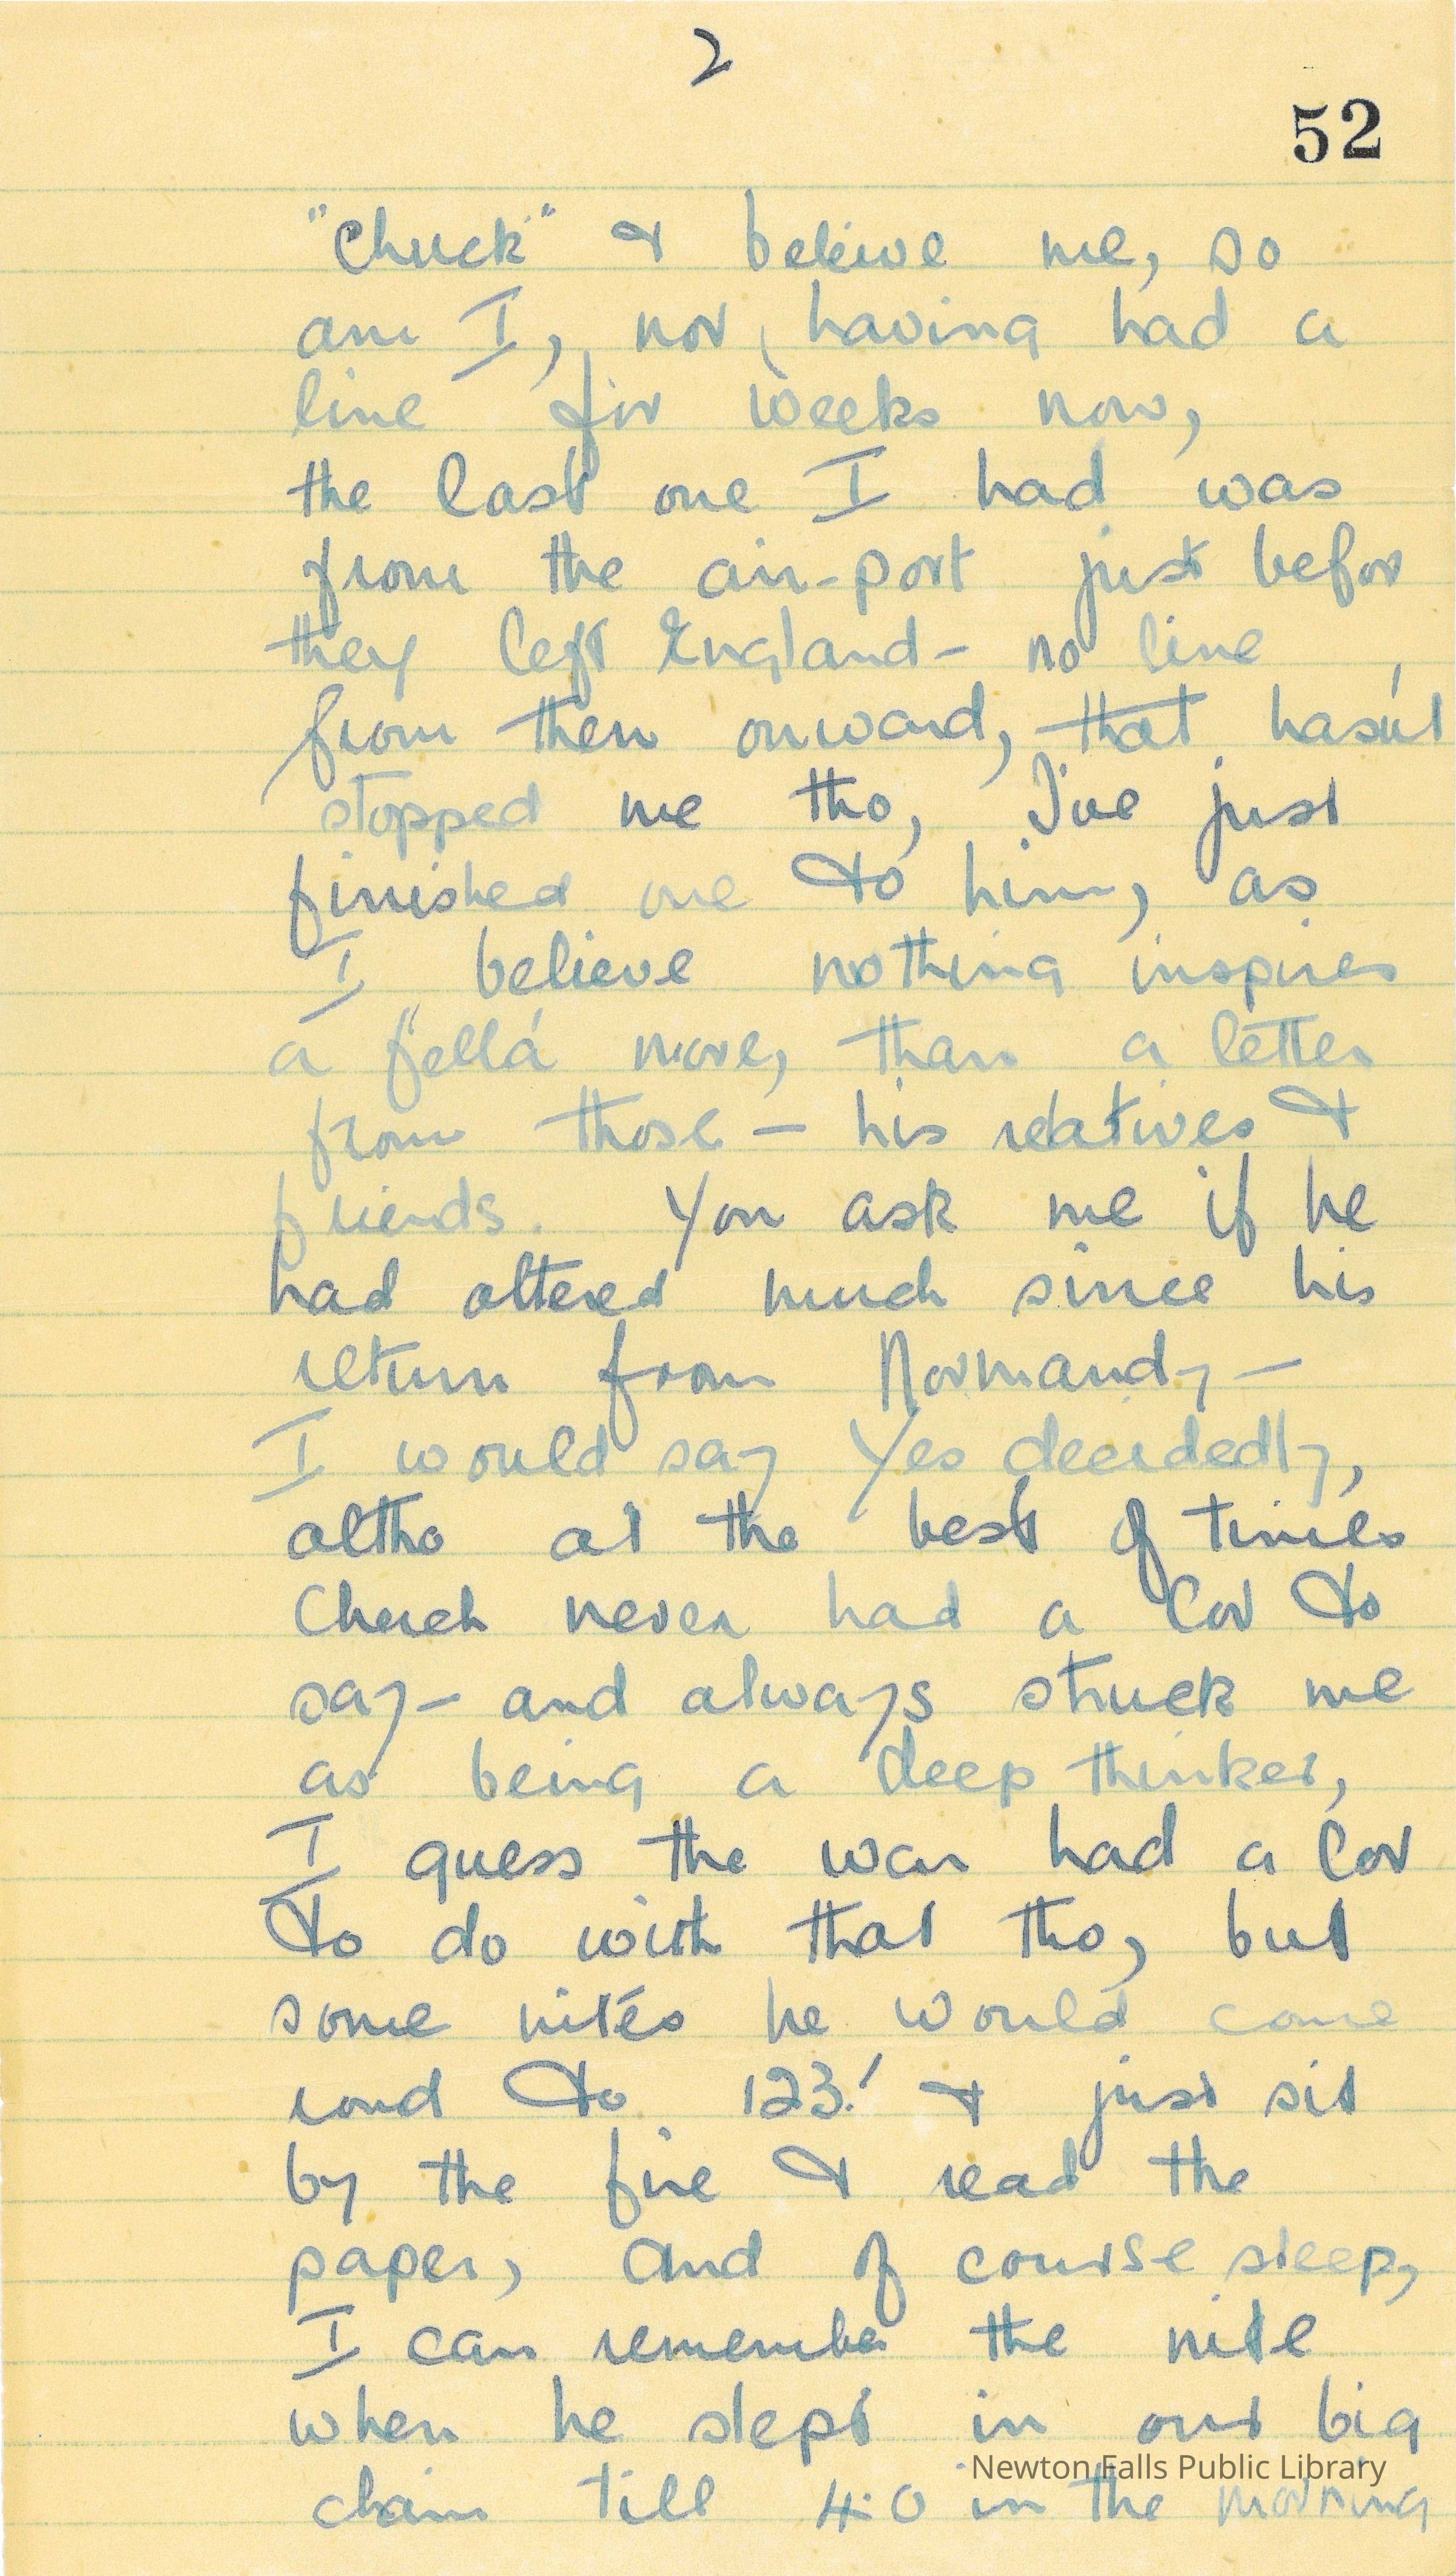 2
52
"Chuck" & beleive me, so
am I, not having had a
line for weeks now,
the last one I had was
from the air-port just befor
they left England - no line
from then onward, that hasn't
stopped me tho, I've just
finished one to him, as
I believe nothing inspires
a "fella" more, than a letter
from those - his relatives &
friends. You ask me if he
had altered much since his
return from Normandy -
I would say Yes decidedly,
altho at the best of times
Chuck never had a lot to
say - and always struck me
as being a deep thinker,
I guess the war had a lot
to do with that tho, but
some nites he would come
round to 123! & just sit
by the fire & read the
paper, and of course sleep,
I can remember the nite
when he slept in our big
Newton Falls Public Library
chair till 4.0 in the morning